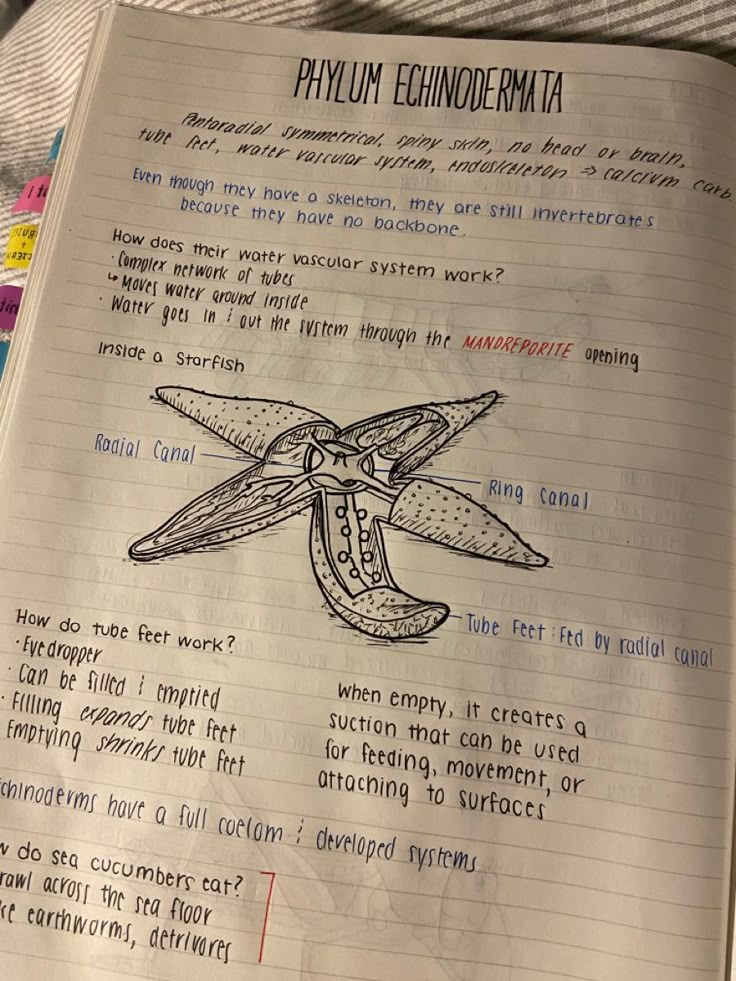 PHYLUM ECHINODERMATA
Pentaradial symmetrical, spiny skin, no head or brain,
tube feet, water vascular system, endoskeleton ⇒ calcium carb.
Even though they have a skeleton, they are still invertebrates
because they have no backbone.
How does their water vascular system work?
· Complex network of tubes
↳ Moves water around inside
· Water goes in & out the system through the MANDREPORITE opening
Inside a Starfish
Radial Canal
Ring Canal
Tube Feet: Fed by radial canal
How do tube feet work?
· Eyedropper
· Can be filled & emptied
· Filling expands tube feet
Emptying shrinks tube feet
when empty, it creates a
suction that can be used
for feeding, movement, or
attaching to surfaces
chinoderms have a full coelom & developed systems
w do sea cucumbers eat?
rawl across the sea floor
ke earthworms, detrivores